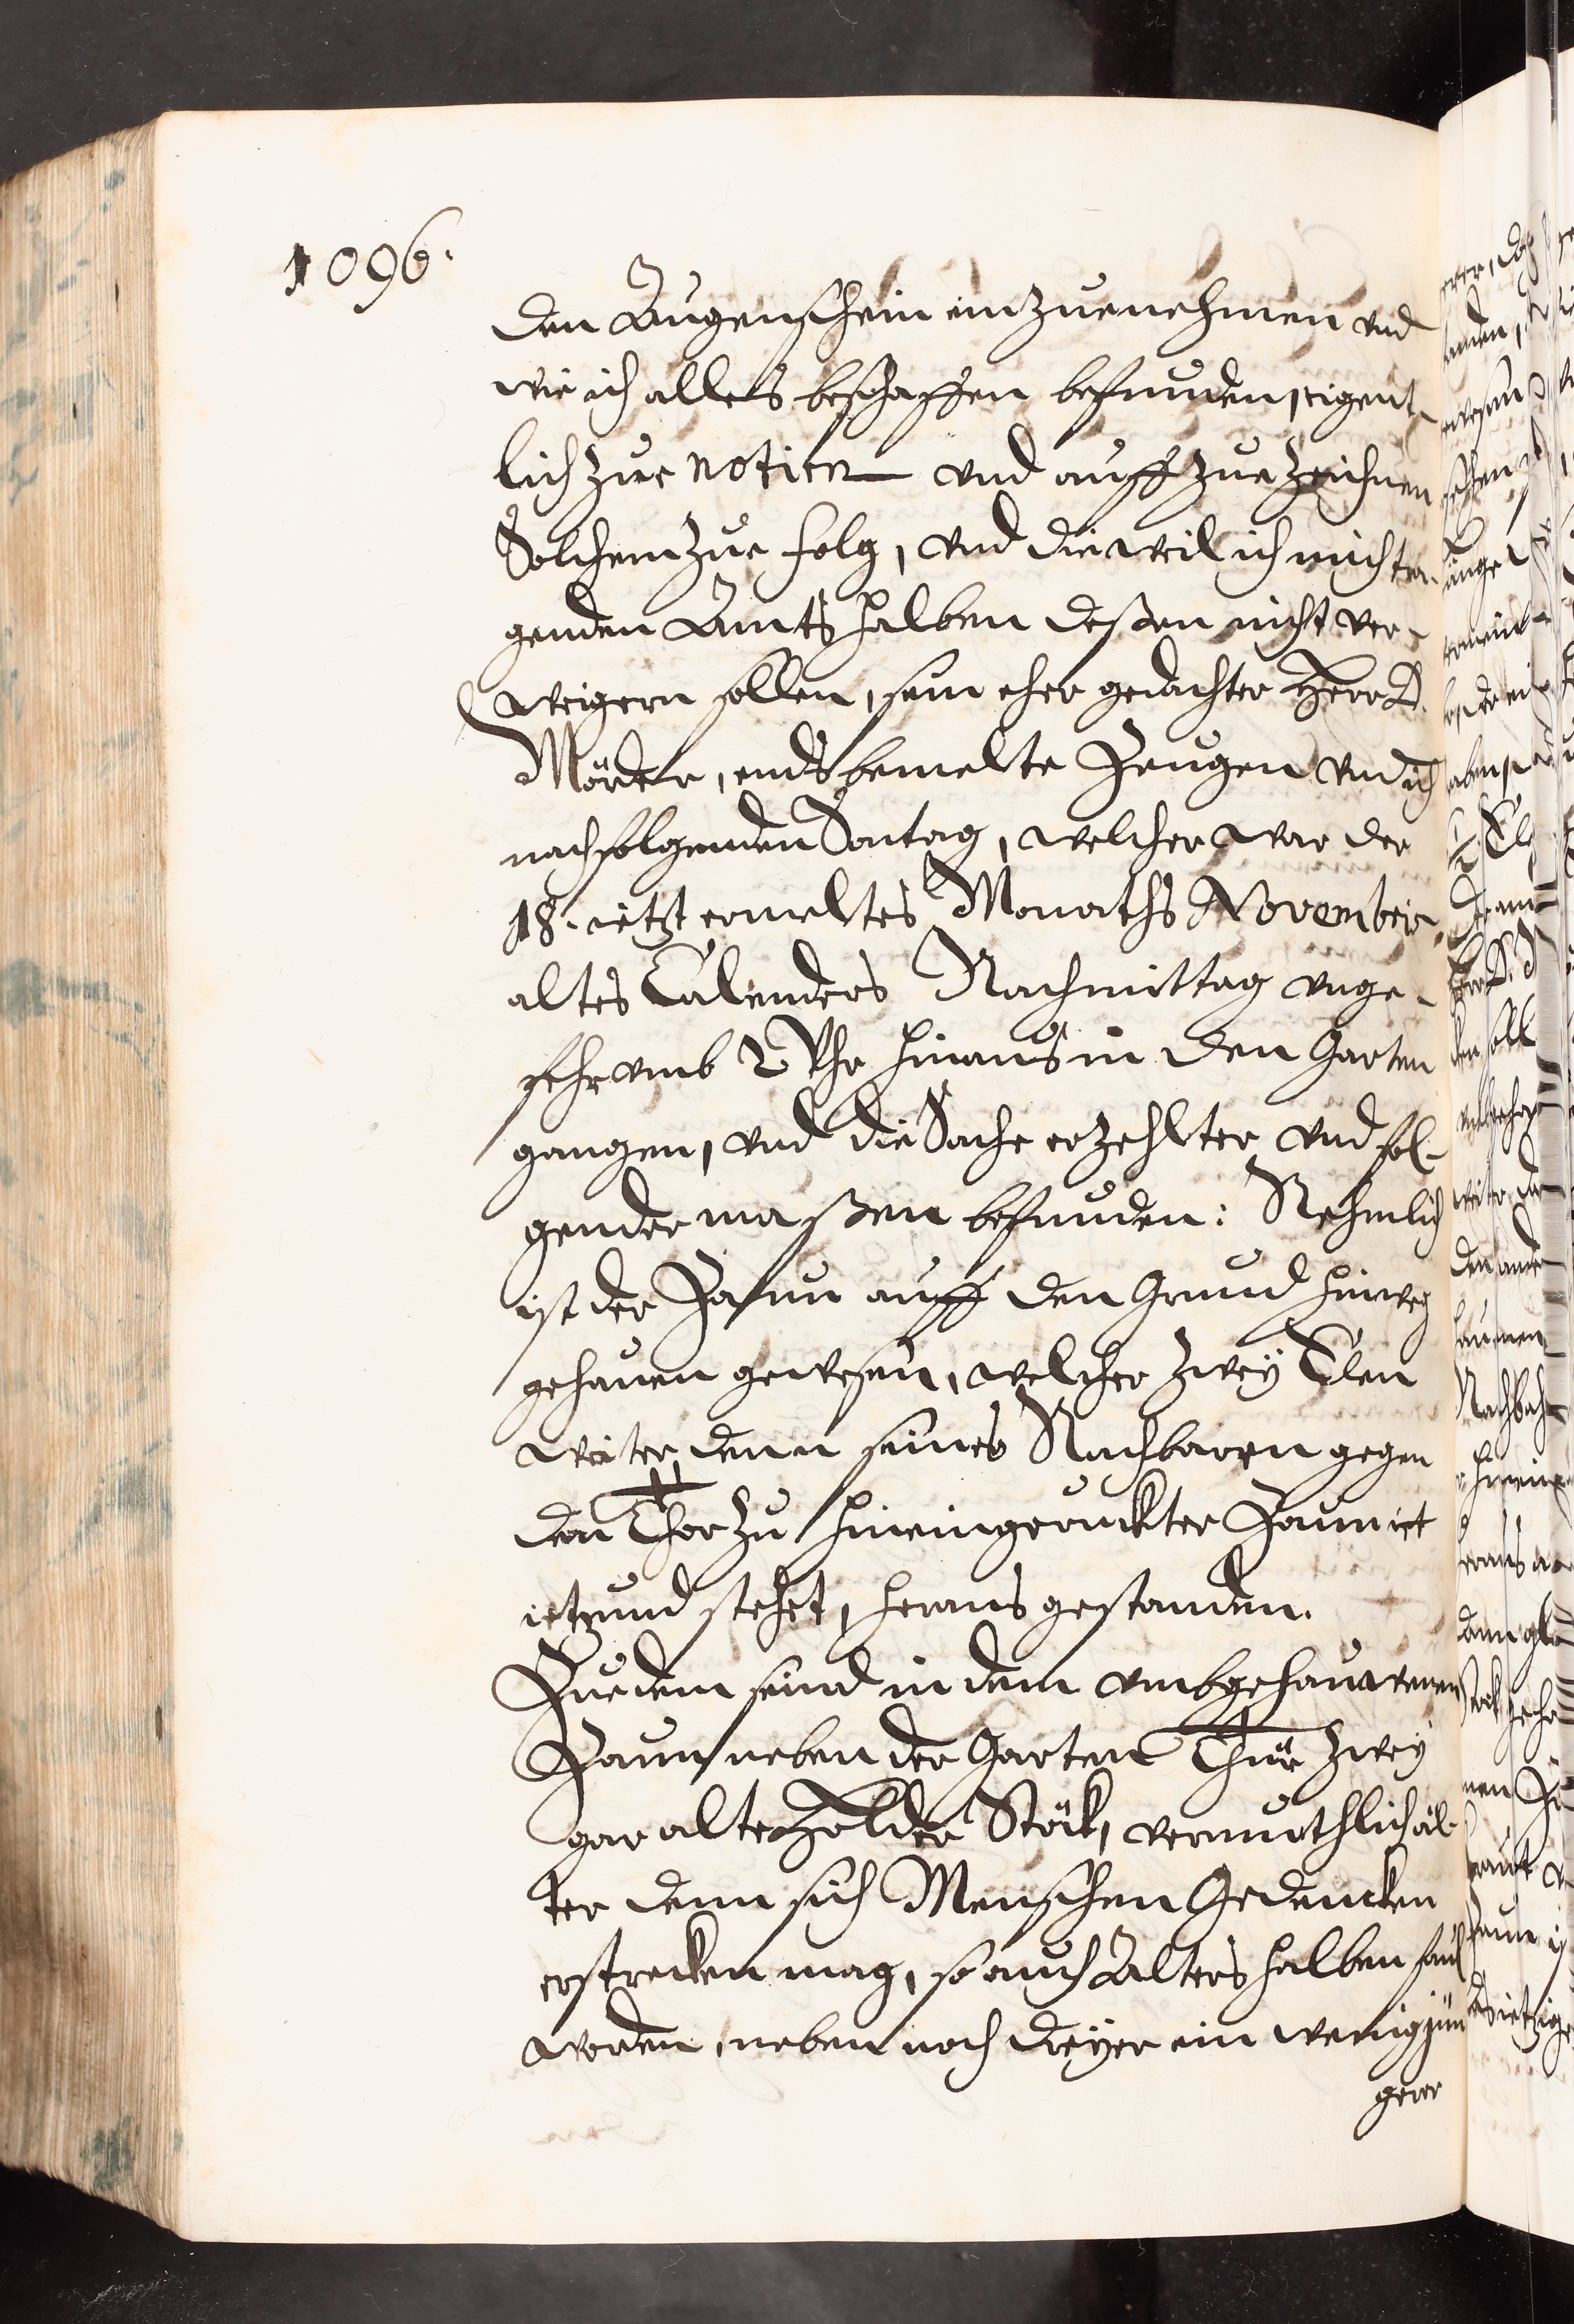 1096.
den Augenschein einzuenehmen vnd
wie ich alles beschaffen befunden, eigent-
lich zue notirn vnd auff zue zeichnen
Solchem zue folg, vnd dieweil ich mich tra-
genden Amts halben deßen nicht ver-
weigern sollen, sein eher gedachter Herr D.
Mörder, ends bemelte Zeugen vnd ich
nachfolgenden Sontag, welcher war der
18. ietzt ermeltes Monaths Novembris,
altes Calenders Nachmittag vnge-
fehr vmb 2 Vhr hinaus in den Garten
gangen, vnd die Sache erzehlter vnd fol-
gender maßen befunden: Nehmlich
ist der Zaun auff den Grund hinweg
gehauen gewesen, welcher zwey Elen
weiter denn seines Nachbarn gegen
den Thor zu hineingeruckter Zaun ist
ietzund stehet, heraus gestanden.
Zuedem seind in dem vmbgehauwenen
Zaun neben der Garten Thür zwey
gar alte Holder Stöck, vermuthlich äl-
ter denn sich Menschen Gedencken
erstrecken mag, so auch Alters halben faul
worden, neben noch dreyer ein wenig jün
gerer